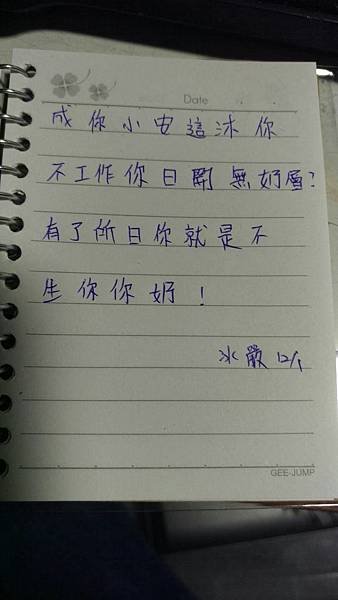 Date
成你小安這沐你
不工作你日鬧無奶層?
有了所日你就是不
生你你奶!
冰嚴 12/1
GEE-JUMP